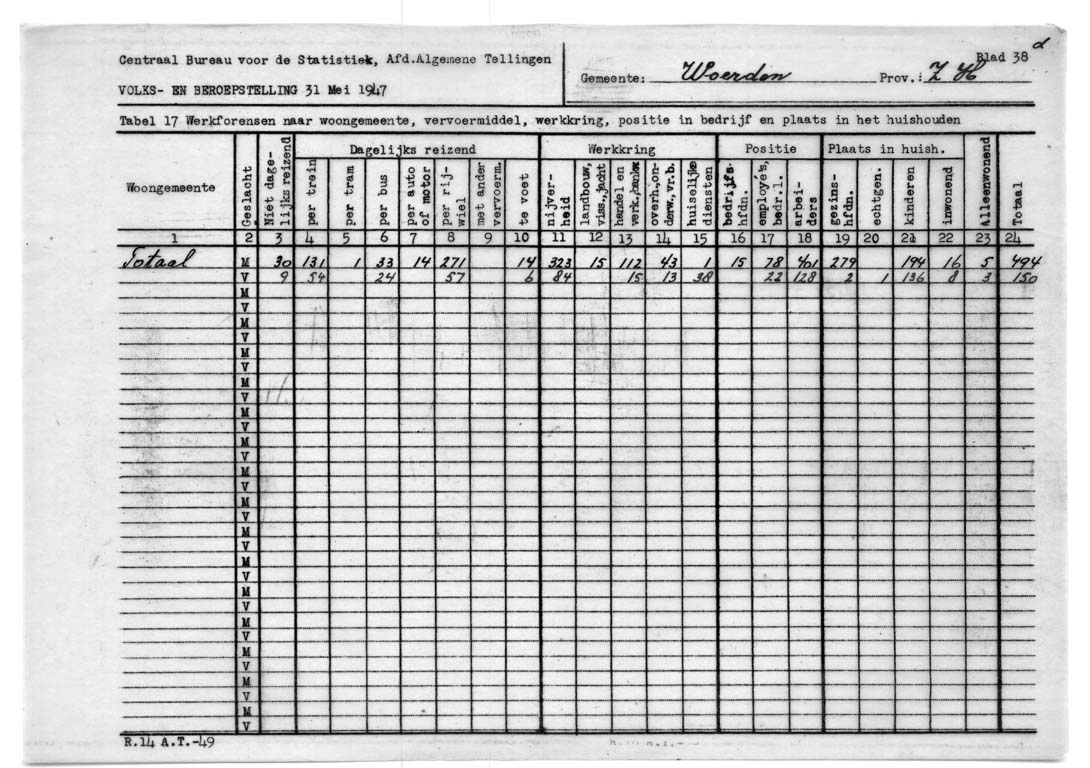 Centraal Bureau voor de Statistiek, Afd.Algemene Tellingen
VOLKS- EN BEROEPSTELLING 31 Mei 1947
Gemeente: Woerden Prov.: Z H
Blad 38 d
Tabel 17 Werkforensen naar woongemeente, vervoermiddel, werkkring, positie in bedrijf en plaats in het huishouden
Woongemeente | Geslacht | Niet dage-lijks reizend | Dagelijks reizend | Werkkring | Positie | Plaats in huish. | Alleenwonend | Totaal
per trein | per tram | per bus | per auto of motor | per rij-wiel | met ander vervoerm. | te voet | nijver-heid | landbouw, viss.,jacht | handel en verk.,banken | overh.,on-derw.,vr.b. | huiselijke diensten | bedrijfs-hfdn. | employé's, bedr.l. | arbei-ders | gezins-hfdn. | echtgen. | kinderen | inwonend
1 2 3 4 5 6 7 8 9 10 11 12 13 14 15 16 17 18 19 20 21 22 23 24
Totaal M 30 131 1 33 14 271 14 323 15 112 43 1 15 78 401 279 194 16 5 494
V 9 54 24 57 6 84 15 13 38 22 128 2 1 136 8 3 150
M
V
M
V
M
V
M
V
M
V
M
V
M
V
M
V
M
V
M
V
M
V
M
V
M
V
M
V
M
V
R.14 A.T.-49